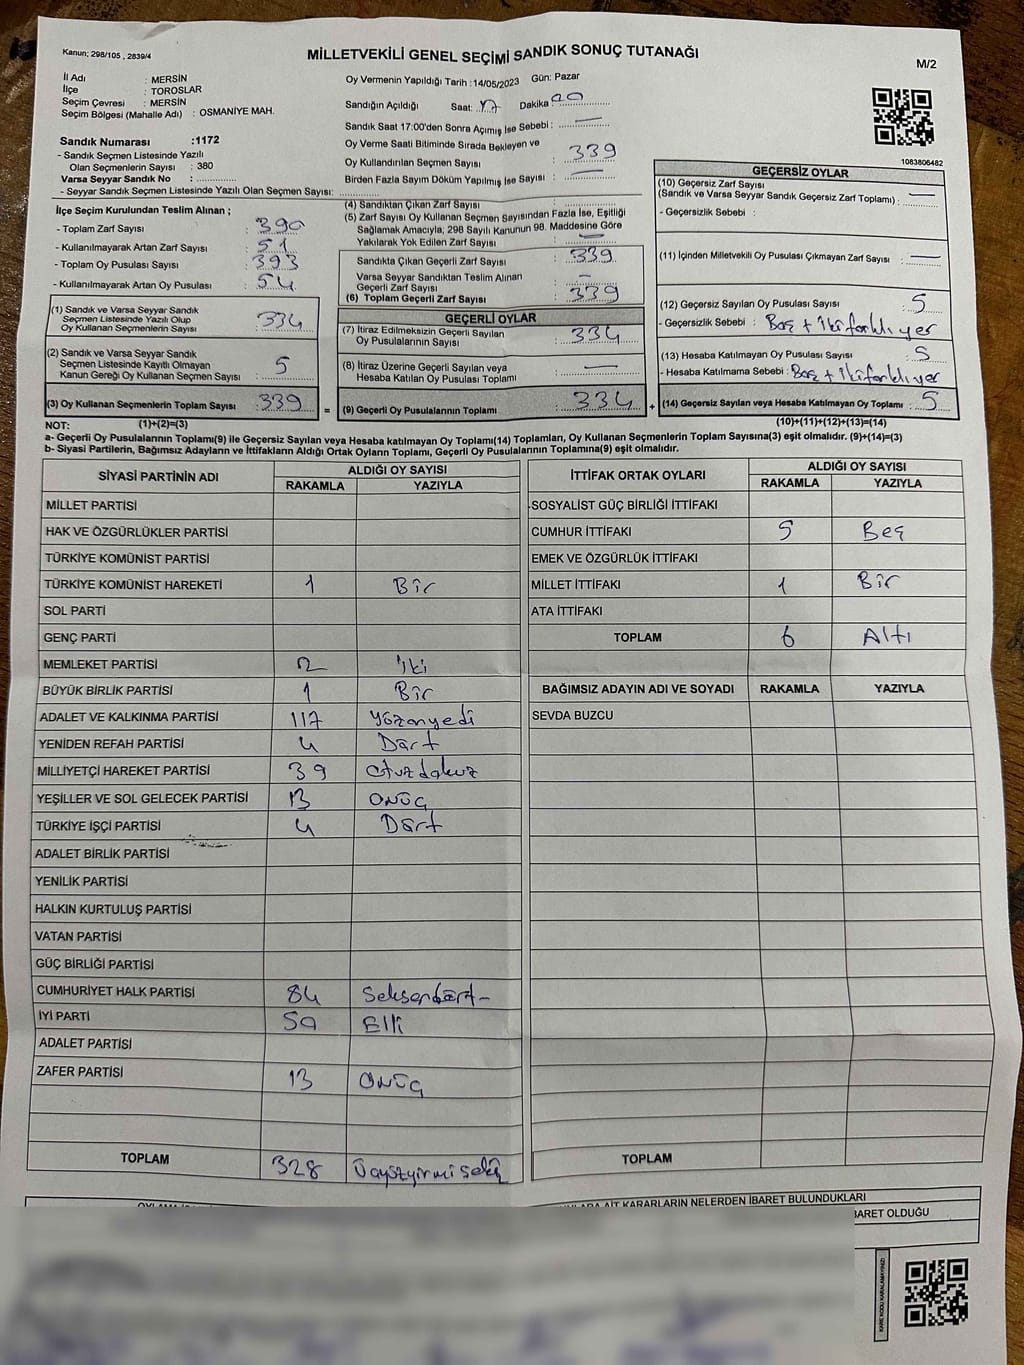 Kanun; 298/105 , 2839/4
MİLLETVEKİLİ GENEL SEÇİMİ SANDIK SONUÇ TUTANAĞI
M/2
İl Adı : MERSİN
İlçe : TOROSLAR
Seçim Çevresi : MERSİN
Seçim Bölgesi (Mahalle Adı) : OSMANİYE MAH.
Sandık Numarası :1172
- Sandık Seçmen Listesinde Yazılı
Olan Seçmenlerin Sayısı : 380
Varsa Seyyar Sandık No :
- Seyyar Sandık Seçmen Listesinde Yazılı Olan Seçmen Sayısı:
Oy Vermenin Yapıldığı Tarih : 14/05/2023 Gün: Pazar
Sandığın Açıldığı Saat: 17 Dakika 00
Sandık Saat 17:00'den Sonra Açmış İse Sebebi : —
Oy Verme Saati Bitiminde Sırada Bekleyen ve
Oy Kullandırılan Seçmen Sayısı : 339
Birden Fazla Sayım Döküm Yapılmış İse Sayısı : —
1083806482
İlçe Seçim Kurulundan Teslim Alınan ;
- Toplam Zarf Sayısı : 390
- Kullanılmayarak Artan Zarf Sayısı : 51
- Toplam Oy Pusulası Sayısı : 393
- Kullanılmayarak Artan Oy Pusulası : 54
(1) Sandık ve Varsa Seyyar Sandık
Seçmen Listesinde Yazılı Olup
Oy Kullanan Seçmenlerin Sayısı : 334
(2) Sandık ve Varsa Seyyar Sandık
Seçmen Listesinde Kayıtlı Olmayan
Kanun Gereği Oy Kullanan Seçmen Sayısı : 5
(3) Oy Kullanan Seçmenlerin Toplam Sayısı : 339 =
(4) Sandıktan Çıkan Zarf Sayısı :
(5) Zarf Sayısı Oy Kullanan Seçmen Sayısından Fazla İse, Eşitliği
Sağlamak Amacıyla; 298 Sayılı Kanunun 98. Maddesine Göre
Yakılarak Yok Edilen Zarf Sayısı : —
Sandıkta Çıkan Geçerli Zarf Sayısı : 339
Varsa Seyyar Sandıktan Teslim Alınan
Geçerli Zarf Sayısı : —
(6) Toplam Geçerli Zarf Sayısı : 339
GEÇERLİ OYLAR
(7) İtiraz Edilmeksizin Geçerli Sayılan
Oy Pusulalarının Sayısı : 334
(8) İtiraz Üzerine Geçerli Sayılan veya
Hesaba Katılan Oy Pusulası Toplamı : —
(9) Geçerli Oy Pusulalarının Toplamı : 334 +
GEÇERSİZ OYLAR
(10) Geçersiz Zarf Sayısı
(Sandık ve Varsa Seyyar Sandık Geçersiz Zarf Toplamı) : —
- Geçersizlik Sebebi :
(11) İçinden Milletvekili Oy Pusulası Çıkmayan Zarf Sayısı : —
(12) Geçersiz Sayılan Oy Pusulası Sayısı : 5
- Geçersizlik Sebebi : Boş + iki farklı yer
(13) Hesaba Katılmayan Oy Pusulası Sayısı : 5
- Hesaba Katılmama Sebebi : Boş + İki farklı yer
(14) Geçersiz Sayılan veya Hesaba Katılmayan Oy Toplamı : 5
NOT: (1)+(2)=(3)
(10)+(11)+(12)+(13)=(14)
a- Geçerli Oy Pusulalarının Toplamı(9) ile Geçersiz Sayılan veya Hesaba katılmayan Oy Toplamı(14) Toplamları, Oy Kullanan Seçmenlerin Toplam Sayısına(3) eşit olmalıdır. (9)+(14)=(3)
b- Siyasi Partilerin, Bağımsız Adayların ve İttifakların Aldığı Ortak Oyların Toplamı, Geçerli Oy Pusulalarının Toplamına(9) eşit olmalıdır.
SİYASİ PARTİNİN ADI ALDIĞI OY SAYISI
RAKAMLA YAZIYLA
MİLLET PARTİSİ
HAK VE ÖZGÜRLÜKLER PARTİSİ
TÜRKİYE KOMÜNİST PARTİSİ
TÜRKİYE KOMÜNİST HAREKETİ 1 Bir
SOL PARTİ
GENÇ PARTİ
MEMLEKET PARTİSİ 2 iki
BÜYÜK BİRLİK PARTİSİ 1 Bir
ADALET VE KALKINMA PARTİSİ 117 yüzonyedi
YENİDEN REFAH PARTİSİ 4 Dört
MİLLİYETÇİ HAREKET PARTİSİ 39 otuzdokuz
YEŞİLLER VE SOL GELECEK PARTİSİ 13 onüç
TÜRKİYE İŞÇİ PARTİSİ 4 Dört
ADALET BİRLİK PARTİSİ
YENİLİK PARTİSİ
HALKIN KURTULUŞ PARTİSİ
VATAN PARTİSİ
GÜÇ BİRLİĞİ PARTİSİ
CUMHURİYET HALK PARTİSİ 84 Seksendört
İYİ PARTİ 50 Elli
ADALET PARTİSİ
ZAFER PARTİSİ 13 onüç
TOPLAM 328 Üçyüzyirmisekiz
İTTİFAK ORTAK OYLARI ALDIĞI OY SAYISI
RAKAMLA YAZIYLA
SOSYALİST GÜÇ BİRLİĞİ İTTİFAKI
CUMHUR İTTİFAKI 5 Beş
EMEK VE ÖZGÜRLÜK İTTİFAKI
MİLLET İTTİFAKI 1 Bir
ATA İTTİFAKI
TOPLAM 6 Altı
BAĞIMSIZ ADAYIN ADI VE SOYADI RAKAMLA YAZIYLA
SEVDA BUZCU
TOPLAM
AİT KARARLARIN NELERDEN İBARET BULUNDUKLARI
BARET OLDUĞU
KARE KODU KARALAMAYINIZ!